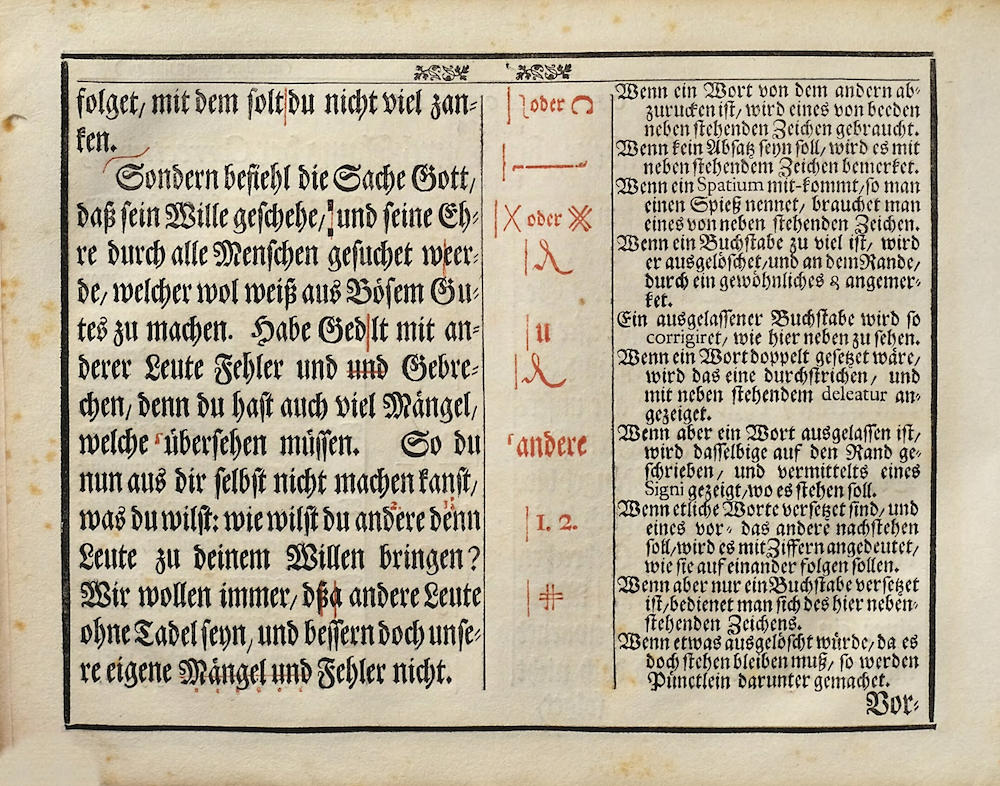 folget, mit dem solt du nicht viel zan-
ken.
Sondern befiehl die Sache Gott,
daß sein Wille geschehe, und seine Eh-
re durch alle Menschen gesuchet weer-
de, welcher wol weiß aus Bösem Gu-
tes zu machen. Habe Gedlt mit an-
derer Leute Fehler und und Gebre-
chen, denn du hast auch viel Mängel,
welche übersehen müssen. So du
nun aus dir selbst nicht machen kanst,
was du wilst: wie wilst du andere denn
Leute zu deinem Willen bringen?
Wir wollen immer, dßa andere Leute
ohne Tadel seyn, und bessern doch unse-
re eigene Mängel und Fehler nicht.
oder
oder
u
andere
1. 2.
Wenn ein Wort von dem andern ab-
zurucken ist, wird eines von beeden
neben stehenden Zeichen gebraucht.
Wenn kein Absatz seyn soll, wird es mit
neben stehendem Zeichen bemerket.
Wenn ein Spatium mit-kommt, so man
einen Spieß nennet, brauchet man
eines von neben stehenden Zeichen.
Wenn ein Buchstabe zu viel ist, wird
er ausgelöschet, und an dem Rande,
durch ein gewöhnliches angemer-
ket.
Ein ausgelassener Buchstabe wird so
corrigiret, wie hier neben zu sehen.
Wenn ein Wort doppelt gesetzet wäre,
wird das eine durchstrichen, und
mit neben stehendem deleatur an-
gezeiget.
Wenn aber ein Wort ausgelassen ist,
wird dasselbige auf den Rand ge-
schrieben, und vermittelts eines
Signi gezeigt, wo es stehen soll.
Wenn etliche Worte versetzet sind, und
eines vor- das andere nachstehen
soll, wird es mit Ziffern angedeutet,
wie sie auf einander folgen sollen.
Wenn aber nur ein Buchstabe versetzet
ist, bedienet man sich des hier neben-
stehenden Zeichens.
Wenn etwas ausgelöscht würde, da es
doch stehen bleiben muß, so werden
Pünctlein darunter gemachet.
Vor-